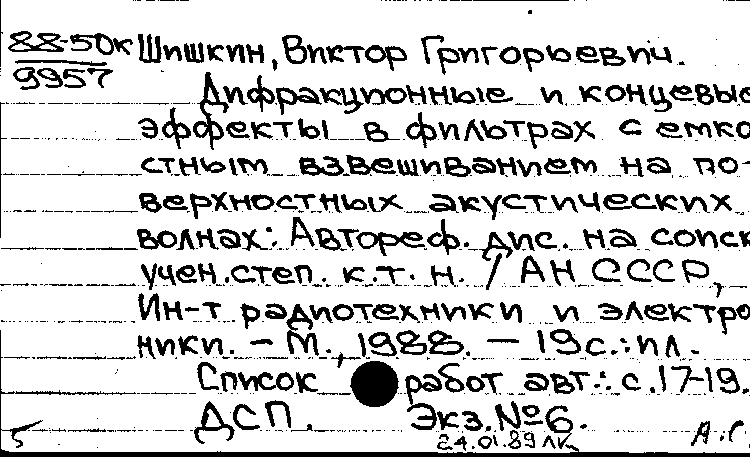 88-50к Шишкин, Виктор Григорьевич.
9957
Дифракционные и концевые
эффекты в фильтрах с емко
стным взвешиванием на по-
верхностных акустических
волнах: Автореф. дис. на соиск
учен.степ. к.т.н. / АН СССР,
Ин-т радиотехники и электро
ники. - М., 1988. - 19с.: ил.
Список работ авт.: с.17-19.
ДСП. Экз.№6.
5 24.01.89 А.С